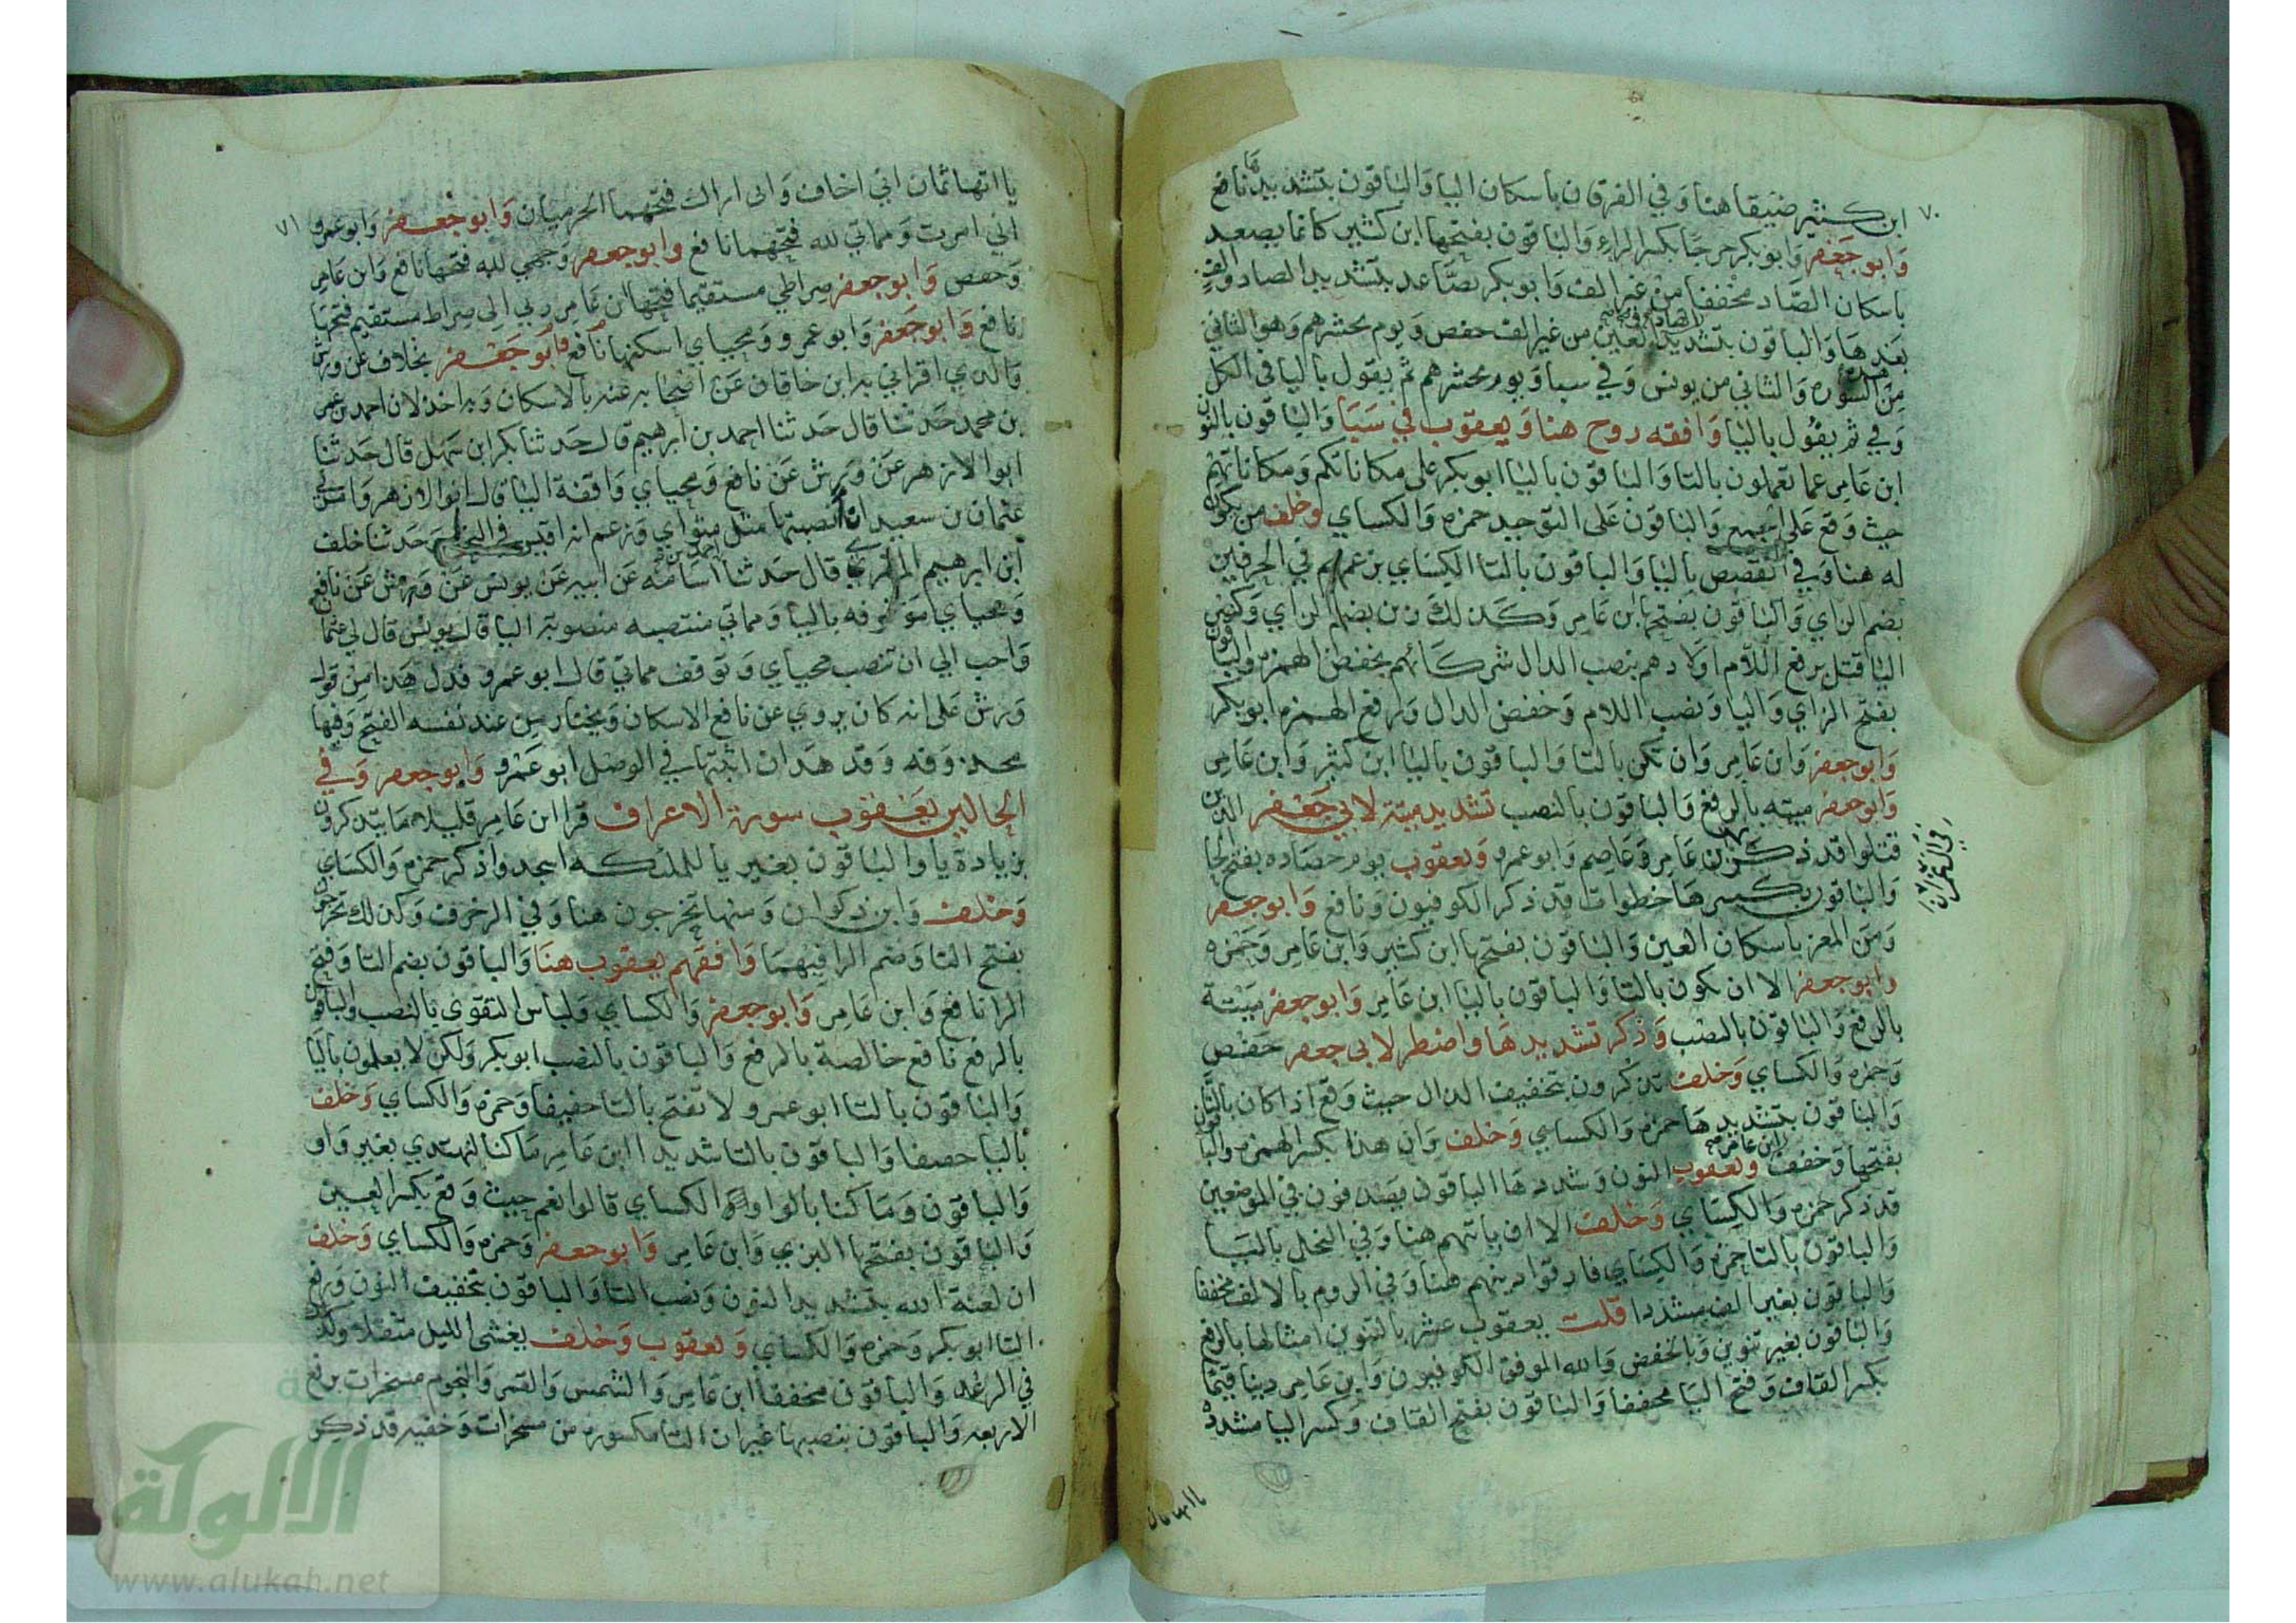 ٧٠
ابن كثير ضيقا هنا وفي الفرقان باسكان اليا والباقون بتشديدها نافع
وابو جعفر وابو بكر حرجا بكسر الراء والباقون بفتحها ابن كثير كانما يصعد
باسكان الصاد مخففا من غير الف وابو بكر يصاعد بتشديد الصاد والف
بعدها والباقون بتشديد الصاد والعين من غير الف حفص ويوم يحشرهم وهو الثاني
من هذه السورة والثاني من يونس وفي سبا ويوم يحشرهم ثم يقول باليا في الكل
وفي ثم يقول باليا وافقه روح هنا ويعقوب في سبا والباقون بالنون
ابن عامر عما تعملون بالتا والباقون باليا ابو بكر على مكاناتكم ومكاناتهم
حيث وقع على الجمع والباقون على التوحيد حمزه والكساي وخلف من يكون
له هنا وفي القصص باليا والباقون بالتا الكساي بزعمهم في الحرفين
بضم الزاي والباقون بفتحها ابن عامر وكذلك زين بضم الزاي وكسر
اليا قتل برفع اللام اولادهم بنصب الدال شركائهم بخفض الهمزه والباقون
بفتح الزاي واليا ونصب اللام وخفض الدال ورفع الهمزه ابو بكر
وابو جعفر وابن عامر وان تكن بالتا والباقون باليا ابن كثير وابن عامر
وابو جعفر ميته بالرفع والباقون بالنصب تشديد ميتة لابي جعفر الذين
قتلوا قد ذكر ابن عامر وعاصم وابو عمرو ويعقوب يوم حصاده بفتح الحا
في آل عمران
والباقون بكسرها خطوات قد ذكر الكوفيون ونافع وابو جعفر
ومن المعز باسكان العين والباقون بفتحها ابن كثير وابن عامر وحمزه
وابو جعفر الا ان تكون بالتا والباقون باليا ابن عامر وابو جعفر ميتة
بالرفع والباقون بالنصب وذكر تشديدها واضطر لابي جعفر حفص
وحمزه والكساي وخلف تذكرون بتخفيف الذال حيث وقع اذا كان بالتا
والباقون بتشديدها حمزه والكساي وخلف وان هذا بكسر الهمزه والباقون
بفتحها وخفف ابن عامر ويعقوب النون وشددها الباقون يصدفون في الموضعين
قد ذكر حمزه والكساي وخلف الا ان ياتيهم هنا وفي النحل باليا
والباقون بالتا حمزه والكساي فارقوا دينهم هنا وفي الروم بالالف مخففا
والباقون بغير الف مشددا قلت يعقوب عشر بالتنوين امثالها بالرفع
والباقون بغير تنوين وبالخفض والله الموفق الكوفيون وابن عامر دينا قيما
بكسر القاف وفتح اليا مخففا والباقون بفتح القاف وكسر اليا مشدده
يا اتها ثمان
٧١
يا اتها ثمان اني اخاف واني اراك فتحهما الحرميان وابو جعفر وابو عمرو
اني امرت ومماتي لله فتحهما نافع وابو جعفر وجهي لله فتحها نافع وابن عامر
وحفص وابو جعفر صراطي مستقيما فتحها ابن عامر ربي الى صراط مستقيم فتحها
نافع وابو جعفر وابو عمرو ومحياي اسكنها نافع وابو جعفر بخلاف عن ورش
والذي اقراني به ابن خاقان عن اصحابه عنه بالاسكان وبه اخذ لان احمد بن عمر
بن محمد حدثنا قال حدثنا احمد بن ابرهيم قال حدثنا بكر ابن سهل قال حدثنا
ابو الازهر عن ورش عن نافع ومحياي واقفة اليا قال ابو الازهر وامرني
عثمان بن سعيد ان انصبها مثل مثواي وزعم انه اقيس في النحو حدثنا خلف
ابن ابرهيم المقري قال حدثنا احمد بن اسامه عن ابيه عن يونس عن ورش عن نافع
ومحياي موقوفه باليا ومماتي منتصبه منصوبة اليا قال يونس قال لي عثمان
واحب الي ان تنصب محياي وتوقف مماتي قال ابو عمرو فدل هذا من قول
ورش على انه كان يروي عن نافع الاسكان ويختار من عند نفسه الفتح وفيها
محذوفه وقد هدان اثبتها في الوصل ابو عمرو وابو جعفر وفي
الحالين يعقوب سورة الاعراف قرا ابن عامر قليلا ما يتذكرون
بزيادة يا والباقون بغير يا للملئكه اسجدوا ذكر حمزه والكساي
وخلف وابن ذكوان ومنها تخرجون هنا وفي الزخرف وكذلك تخرجون
بفتح التا وضم الرا فيهما وافقهم يعقوب هنا والباقون بضم التا وفتح
الرا نافع وابن عامر وابو جعفر والكساي ولباس التقوى بالنصب والباقون
بالرفع نافع خالصة بالرفع والباقون بالنصب ابو بكر ولكن لا يعلمون باليا
والباقون بالتا ابو عمرو لا تفتح بالتا خفيفا وحمزه والكساي وخلف
باليا خفيفا والباقون بالتا شديدا ابن عامر ما كنا لنهتدي بغير واو
والباقون وما كنا بالواو الكساي قالوا نعم حيث وقع بكسر العين
والباقون بفتحها البزي وابن عامر وابو جعفر وحمزه والكساي وخلف
ان لعنة الله بتشديد النون ونصب التا والباقون بتخفيف النون ورفع
التا ابو بكر وحمزه والكساي ويعقوب وخلف يغشي الليل مثقلا وكذا
في الرعد والباقون مخففا ابن عامر والشمس والقمر والنجوم مسخرات برفع
الاربعه والباقون بنصبها غير ان التا مكسوره من مسخرات وخفيه قد ذكر
الألوكة
www.alukah.net